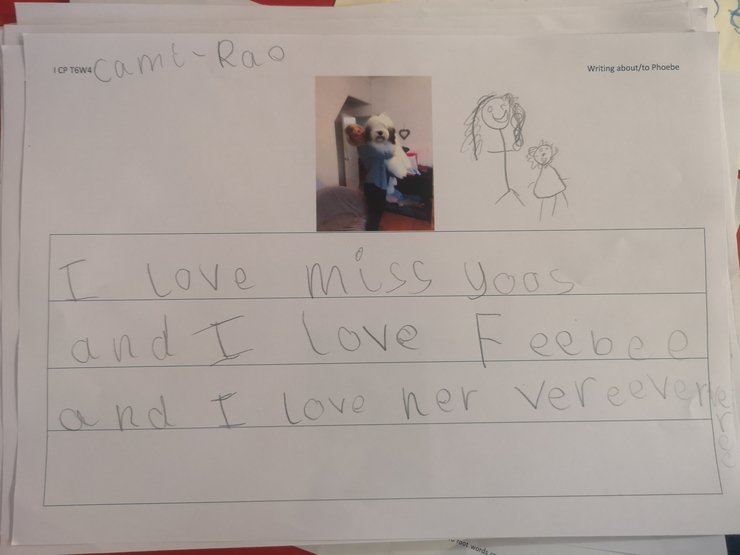 I CP T6W4
Camt-Rao
Writing about/to Phoebe
I love miss yoos
and I love Feebee
and I love her vereeververee
root words